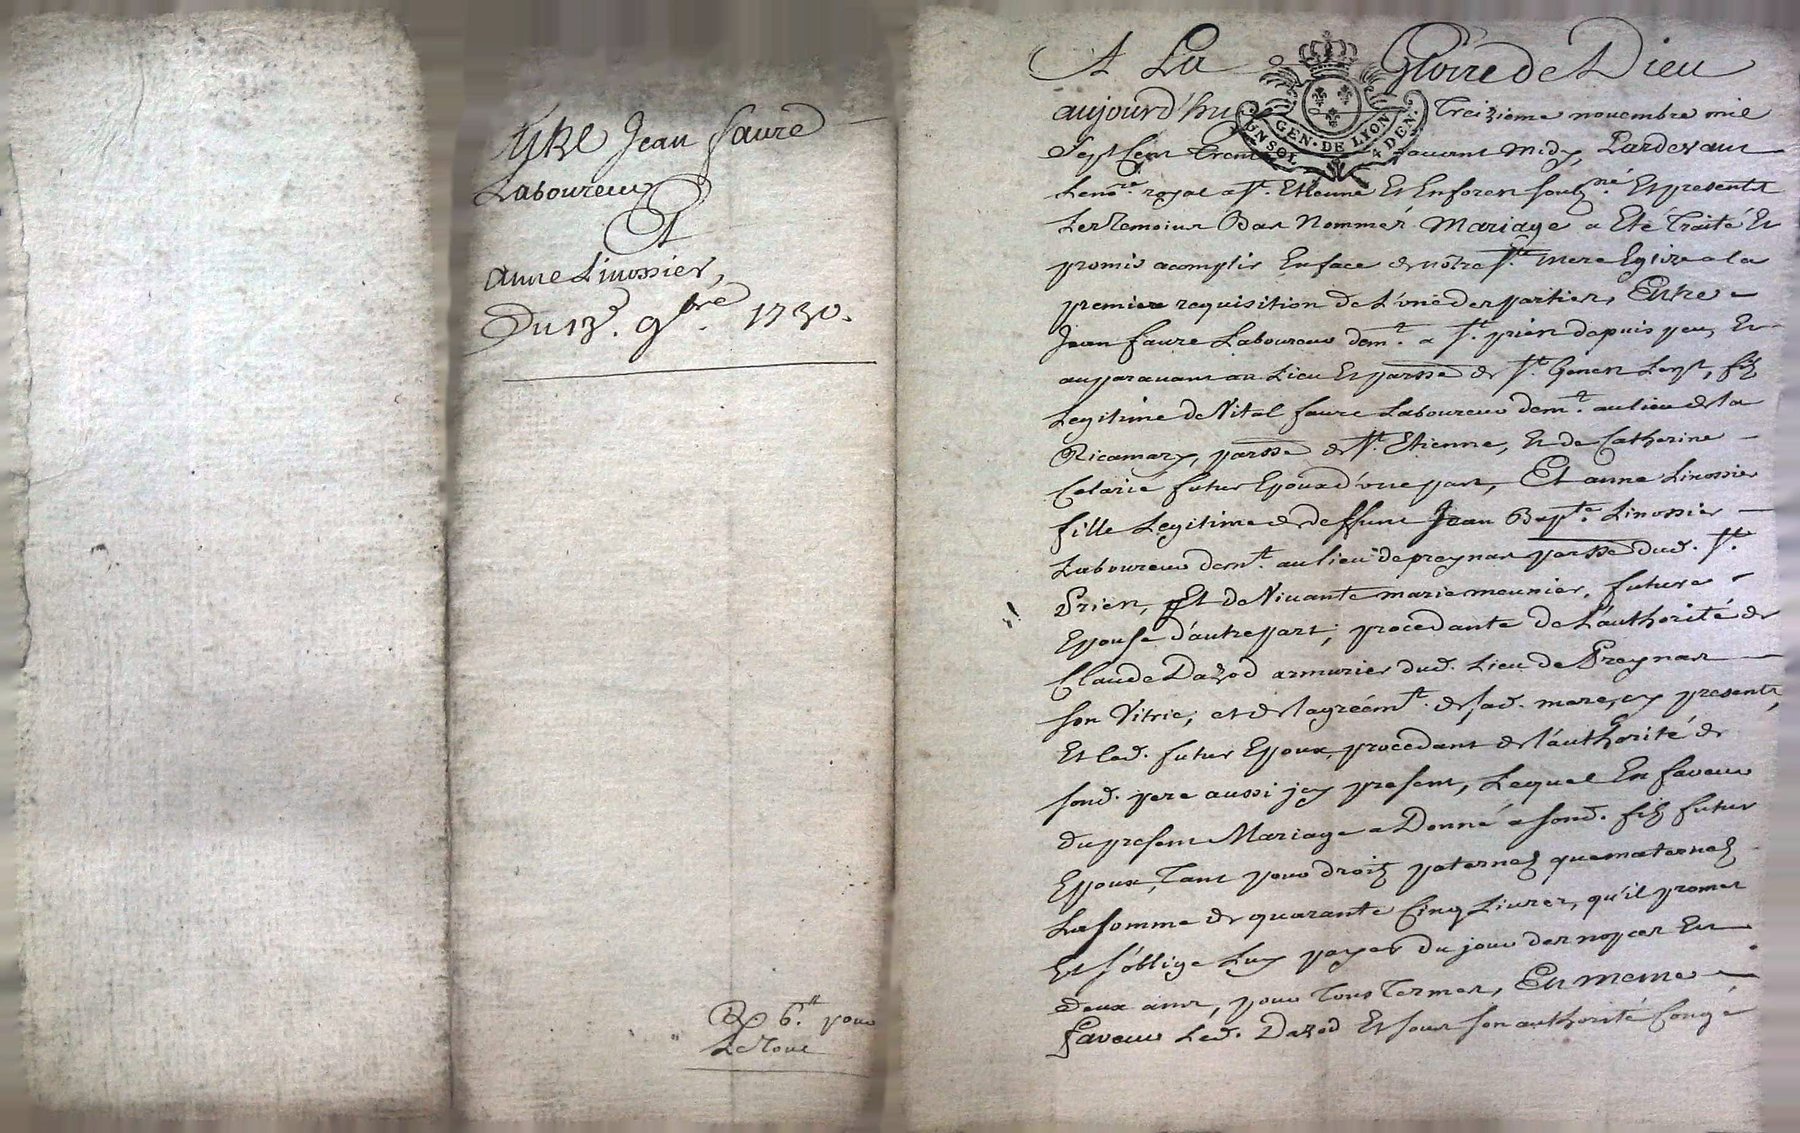 Jean faure
Laboureur
Et
anne Linossier,
Du 13e. 9bre. 1730.
R 6tt. pour
Le Tout
A La Gloire de Dieu
GEN. DE LYON
UN SOL 4 DEN.
aujourd'huy Treizieme novembre mil
Sept Cent Trente avant Midy, Pardevant
Le nore. royal a St. Etienne Et Enforest soubzné. Et presents
Les Temoins Bas Nommés Mariage a Eté Traité Et
promis acomplir En face de nôtre Ste. mere Eglize a la
premiere requisition de L'une des parties, Entre
Jean faure Laboureur demt. a St. prien depuis peu, Et
auparavant au Lieu Et parsse de St. Genen Lerpt, fils
Legitime de Vital faure Laboureur demt. au lieu de la
Ricamary, parsse de St. Etienne, Et de Catherine
Celarié futur Epoux d'une part, Et anne Linossier
fille Legitime de deffunt Jean Bapte. Linossier
Laboureur demt. au lieu de preynas parsse dud. St.
Prien, Et de Vivante marie meunier, future
Epouse d'autre part; procedante de L'authorité de
Claude Dazod armurier dud. Lieu de Preynas
son Vitric; et de l'agréemt. de sad. mere, icy presents,
Et led. futur Epoux procedant de l'authorité de
sond. pere aussi icy present, Lequel En faveur
du present Mariage a Donné a sond. fils futur
Epoux, Tant pour droits paternels que maternels
La somme de quarante Cinq Livres, qu'il promet
Et s'oblige Luy payer du jour des nopces En
Deux ans, pour Tous Termes, En meme
faveur Led. Dazod Et sous son authorité Congé